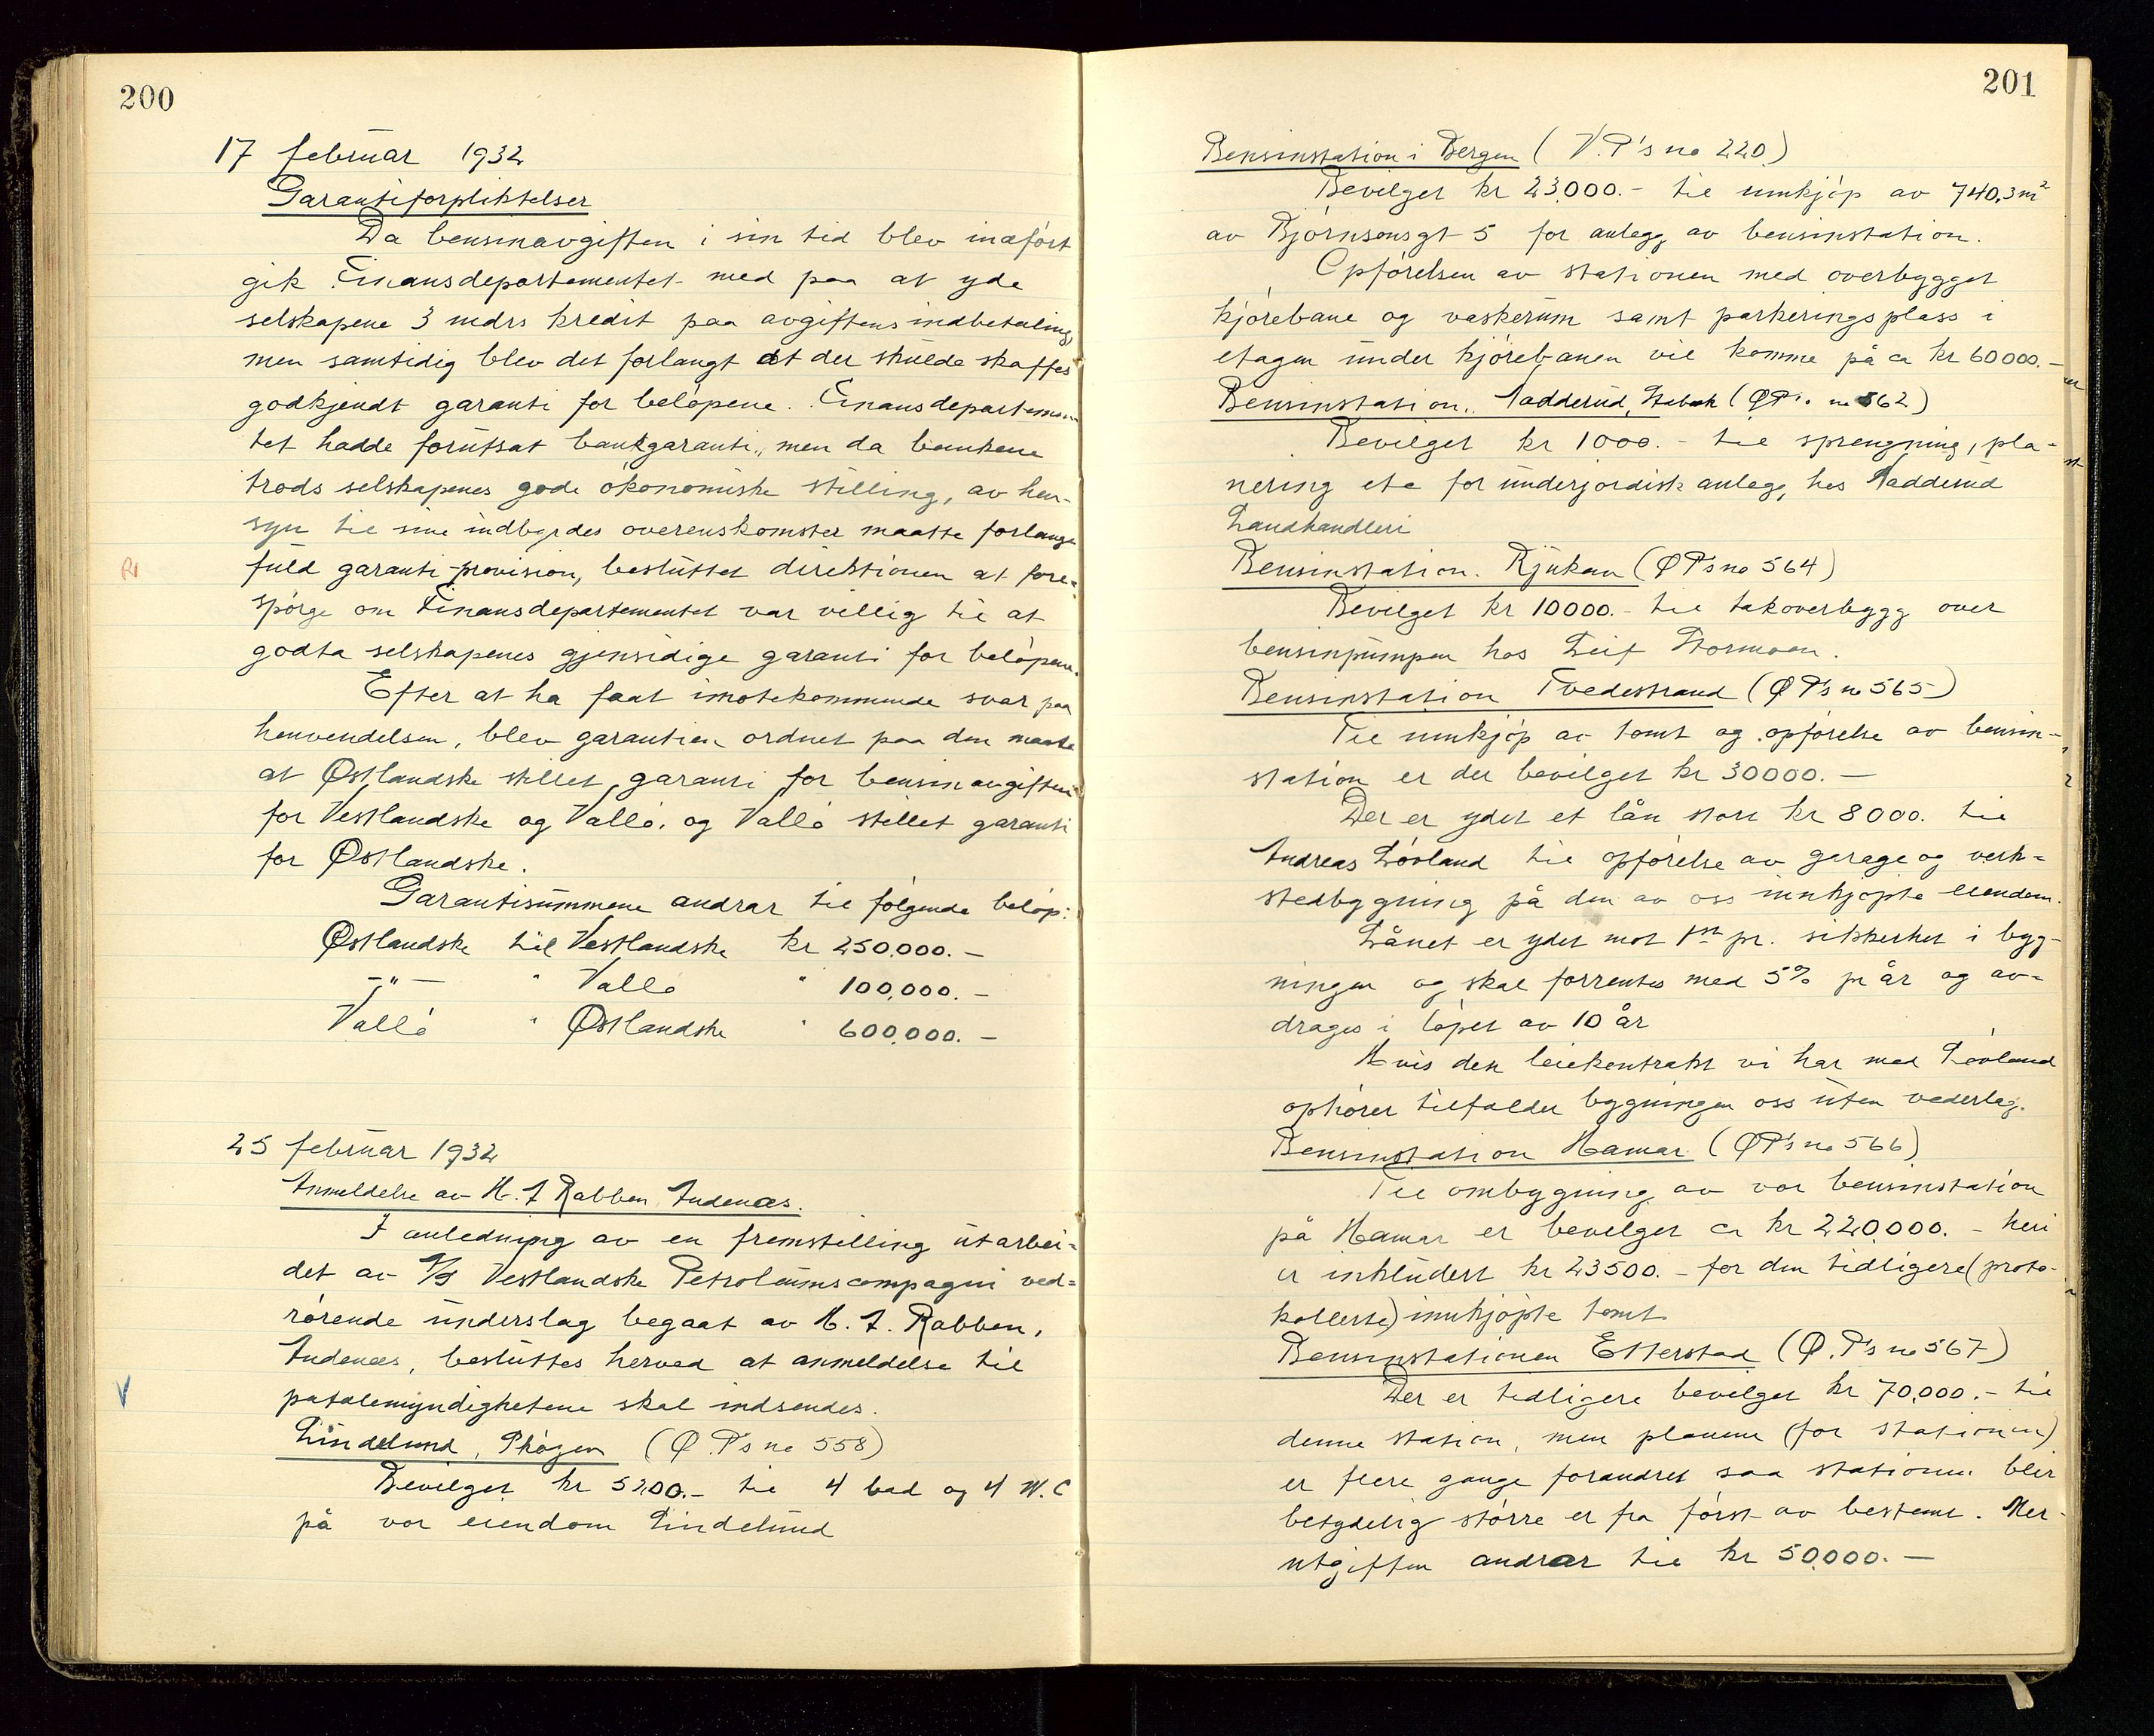 200
17 februar 1932
Garantiforpliktelser
Da bensinavgiften i sin tid blev indført
gik Finansdepartementet med paa at yde
selskapene 3 mdrs kredit paa avgiftens indbetaling,
men samtidig blev det forlangt at der skulde skaffes
godkjendt garanti for beløpene. Finansdepartemen-
tet hadde forutsat bankgaranti, men da bankene
trods selskapenes gode økonomiske stilling, av hen-
syn til sine indbyrdes overenskomster maatte forlange
fuld garanti-provision, besluttet direktionen at fore-
spørge om Finansdepartementet var villig til at
godta selskapenes gjensidige garanti for beløpene.
Efter at ha faat imøtekommende svar paa
henvendelsen, blev garantien ordnet paa den maate
at Østlandske stillet garanti for bensinavgiften
for Vestlandske og Vallø, og Vallø stillet garanti
for Østlandske.
Garantisummene andrar til følgende beløp:
Østlandske til Vestlandske kr 250.000.-
-"- " Vallø " 100,000.-
Vallø " Østlandske " 600.000.-
25 februar 1932
Anmeldelse av H. J Rabben Andenæs.
I anledning av en fremstilling utarbei-
det av A/S Vestlandske Petroleumscompagni ved-
rørende underslag begaat av H. J. Rabben,
Andenæs, besluttes herved at anmeldelse til
patalemyndighetene skal indsendes.
Lindelund, Skøyen (Ø.P's no 558)
Bevilget kr 5200.- til 4 bad og 4 W.C
på vor eiendom Lindelund
201
Bensinstation i Bergen (V.P's no 220)
Bevilget kr 23.000.- til innkjøp av 740,3 m²
av Bjørnsonsgt 5 for anlegg av bensinstation.
Opførelsen av stationen med overbygget
kjørebane og vaskerum samt parkeringsplass i
etagen under kjørebanen vil komme på ca kr 60000.-
Bensinstation. Nadderud, Stabæk (ØP's no 562)
Bevilget kr 1000.- til sprengning, pla-
nering etc for underjordisk anlegg, hos Nadderud
Landhandleri
Bensinstation. Rjukan (ØP's no 564)
Bevilget kr 10000.- til takoverbygg over
bensinpumpen hos Leif Stormoen.
Bensinstation Tvedestrand (ØP's no 565)
Til innkjøp av tomt og opførelse av bensin-
station er der bevilget kr 30000.-
Der er ydet et lån stort kr 8000. til
Andreas Løvland til opførelse av garage og verk-
stedbygning på den av oss innkjøpte eiendom.
Lånet er ydet mot 1ste pr. sikkerhet i byg-
ningen og skal forrentes med 5% pr år og av-
drages i løpet av 10 år
Hvis den leiekontrakt vi har med Løvland
ophører tilfalder bygningen oss uten vederlag.
Bensinstation Hamar (ØP's no 566)
Til ombygning av vor bensinstation
på Hamar er bevilget ca kr 220.000.- heri
er inkludert kr 23500.- for den tidligere (proto-
kollerte) innkjøpte tomt
Bensinstationen Etterstad (Ø.P's no 567)
Der er tidligere bevilget kr 70,000.- til
denne station, men planene (for stationen)
er flere gange forandret saa stationen blir
betydelig større er fra først av bestemt. Mer-
utgiften andrar til kr 50.000.-